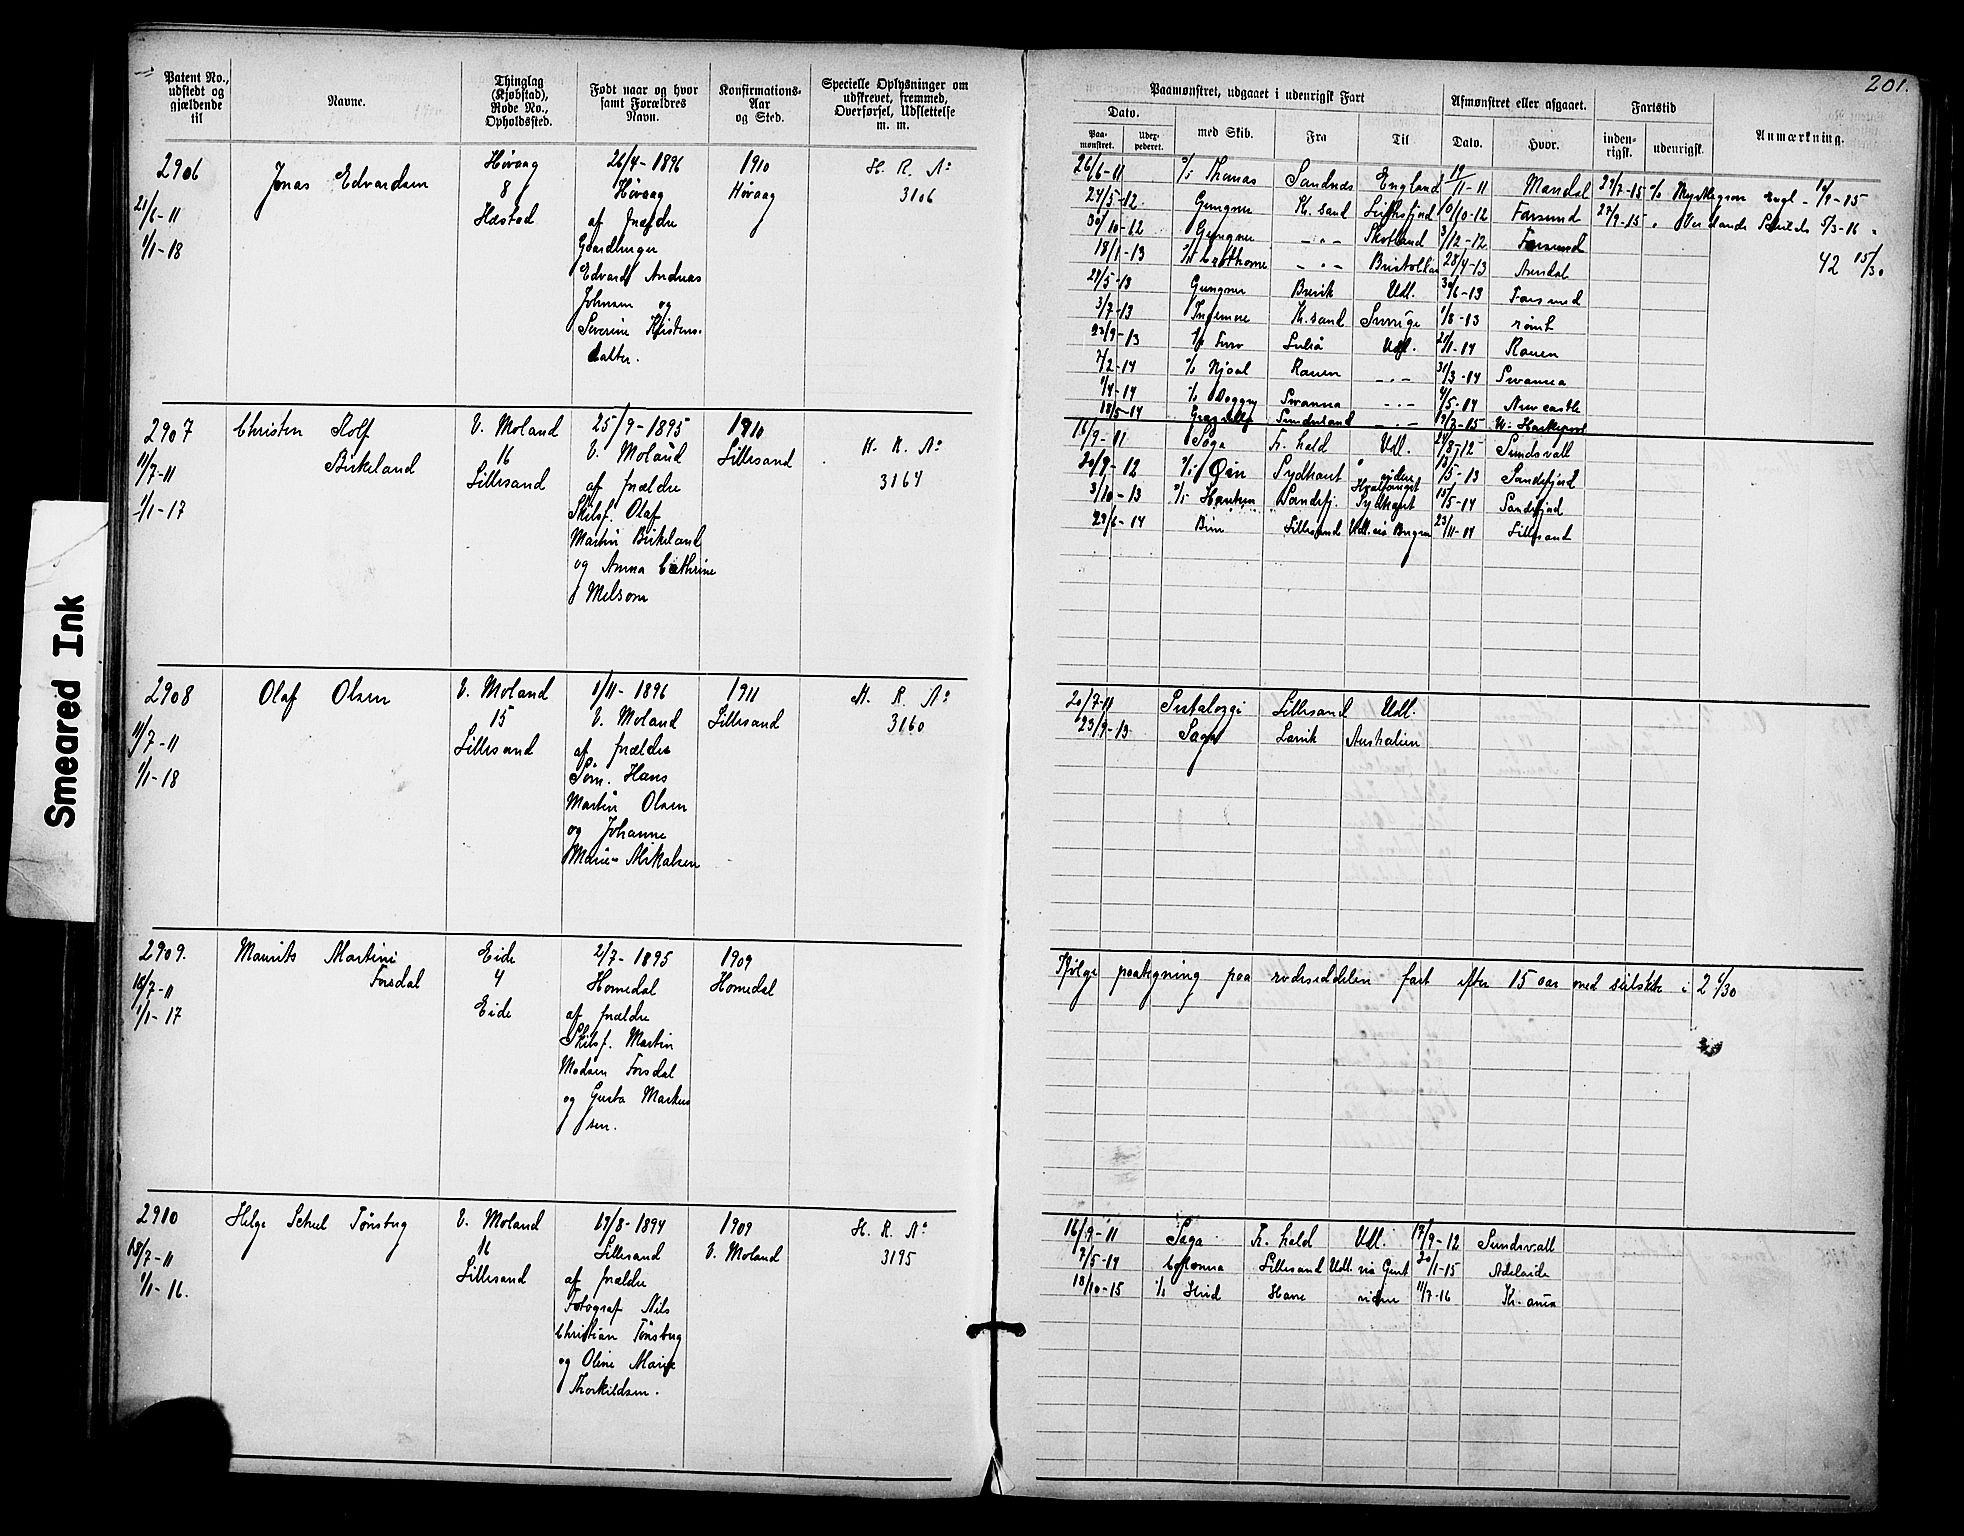 201.
Smeared Ink
Patent No., udstedt og gjældende til
Navne.
Thinglag (Kjøbstad), Rode No., Opholdssted.
Født naar og hvor samt Forældres Navn.
Konfirmations-Aar og Sted.
Specielle Oplysninger om udskrevet, fremmed, Overførsel, Udslettelse m. m.
Paamønstret, udgaaet i udenrigsk Fart
Afmønstret eller afgaaet.
Fartstid
Anmærkning.
Dato.
Paa-mønstret.
Udex-pederet.
med Skib.
Fra
Til
Dato.
Hvor.
inden-rigsk.
udenrigsk.
2906
21/6-11
1/1-18
Jonas Edvardsen
Høvaag
8
Hæstad
26/4-1896
Høvaag
af forældre
Gaardbruger
Edvard Andreas
Johnsen og
Severine Kristens-
datter.
1910
Høvaag
H. R. No
3106
26/6-11 Thomas Sandnæs England 19/11-11 Mandal 27/7-15 Engl - 14/9-15
24/5-12 Gungner K. sand 10/10-12 Farsund 27/9-15 5/3-16
30/10-12 Gungner - " - Skotland 3/12-12 Farsund
18/1-13 - " - 28/4-13 Arendal 42 15/30
29/5-13 Gungner Udl. 30/6-13 Farsund
3/7-13 Ingemere K. sand Sverige 1/8-13 rømt
23/9-13 Luleå Udl. Rouen
7/2-14 Njaal Rouen - " - 31/3-14 Swansea
1/4-14 Swansea - " - 4/5-14 Newcastle
18/5-14 Sunderland - " - W. Hartlepool
2907
11/7-11
1/1-17
Christen Rolf
Birkeland
V. Moland
16
Lillesand
25/9-1895
V. Moland
af forældre
Skibsf. Olaf
Martin Birkeland
og Anna Cathrine
Melsom
1910
Lillesand
H. R. No
3164
16/9-11 Saga Fr. hald Udl. 24/8-12 Sundsvall
20/9-12 Ørn Sydkant videre 13/5-13 Sandefjord
Hvalfangst
3/10-13 Sandefj. 15/5-14 Sandefjord
29/6-14 Lillesand 23/11-14 Lillesand
2908
11/7-11
1/1-18
Olaf Olsen
V. Moland
15
Lillesand
1/11-1896
V. Moland
af forældre
Søm. Hans
Martin Olsen
og Johanne
Marie Mikalsen
1911
Lillesand
H. R. No
3160
20/7-11 Pestalozzi Lillesand Udl.
23/9-13 Saga Larvik Australien
2909.
18/7-11
1/1-17
Maurits Martini
Forsdal
Eide
4
Eide
2/7-1895
Homedal
af forældre
Skibsf. Martin
Madsen Forsdal
og Gusta Markus
sen.
1909
Homedal
Ifølge paategning paa rodeseddelen fart efter 15 aar med seilskibe i 2 6/30
2910
18/7-11
1/1-16.
Helge Schul Tønsberg
V. Moland
16
Lillesand
19/8-1894
Lillesand
af forældre
Fotograf Nils
Christian Tønsberg
og Oline Marie
Thorkildsen.
1909
V. Moland
H. R. No
3195
16/9-11 Saga Fr. hald Udl. 19/9-12 Sundsvall
7/5-14 Colonna Lillesand Udl. via 20/1-15 Adelaide
18/10-15 Hird Havre videre 11/7-16 Kr. ania